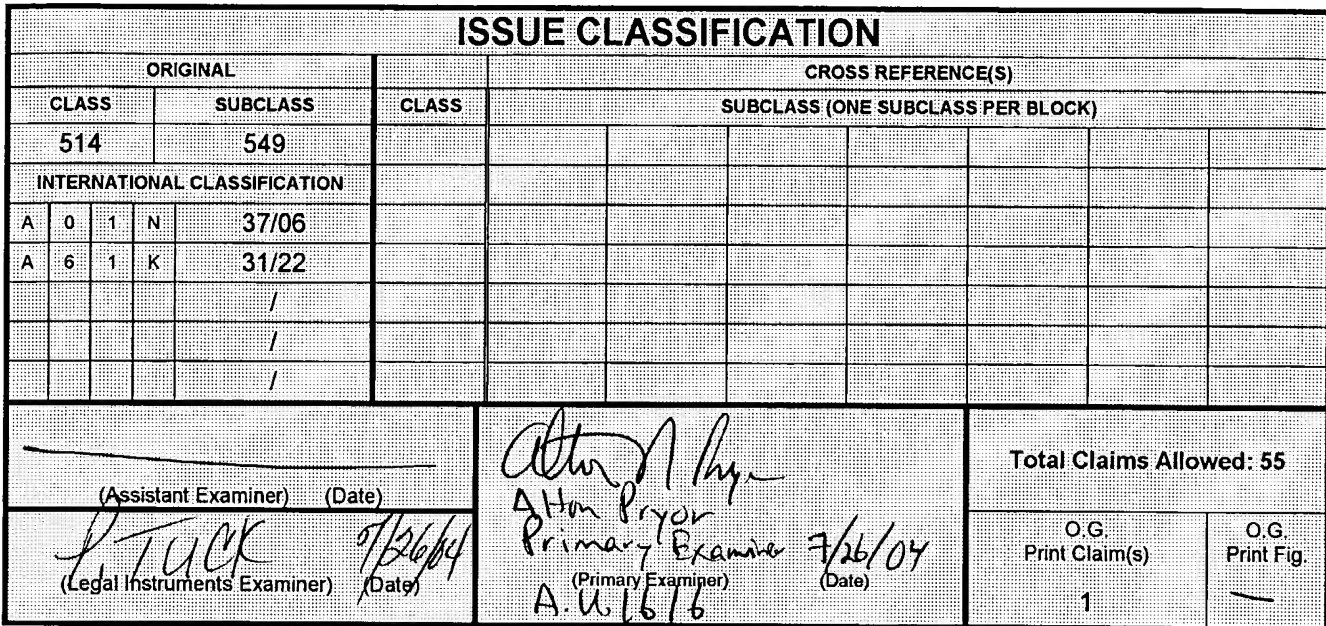 ISSUE CLASSIFICATION
ORIGINAL
CROSS REFERENCE(S)
CLASS SUBCLASS CLASS SUBCLASS (ONE SUBCLASS PER BLOCK)
514 549
INTERNATIONAL CLASSIFICATION
A 0 1 N 37/06
A 6 1 K 31/22
/
/
/
(Assistant Examiner) (Date)
P. TUCK 7/26/04
(Legal Instruments Examiner) (Date)
Alton N Pryor
Alton Pryor
Primary Examiner 7/26/04
(Primary Examiner) (Date)
A.U. 1616
Total Claims Allowed: 55
O.G.
Print Claim(s)
1
O.G.
Print Fig.
—